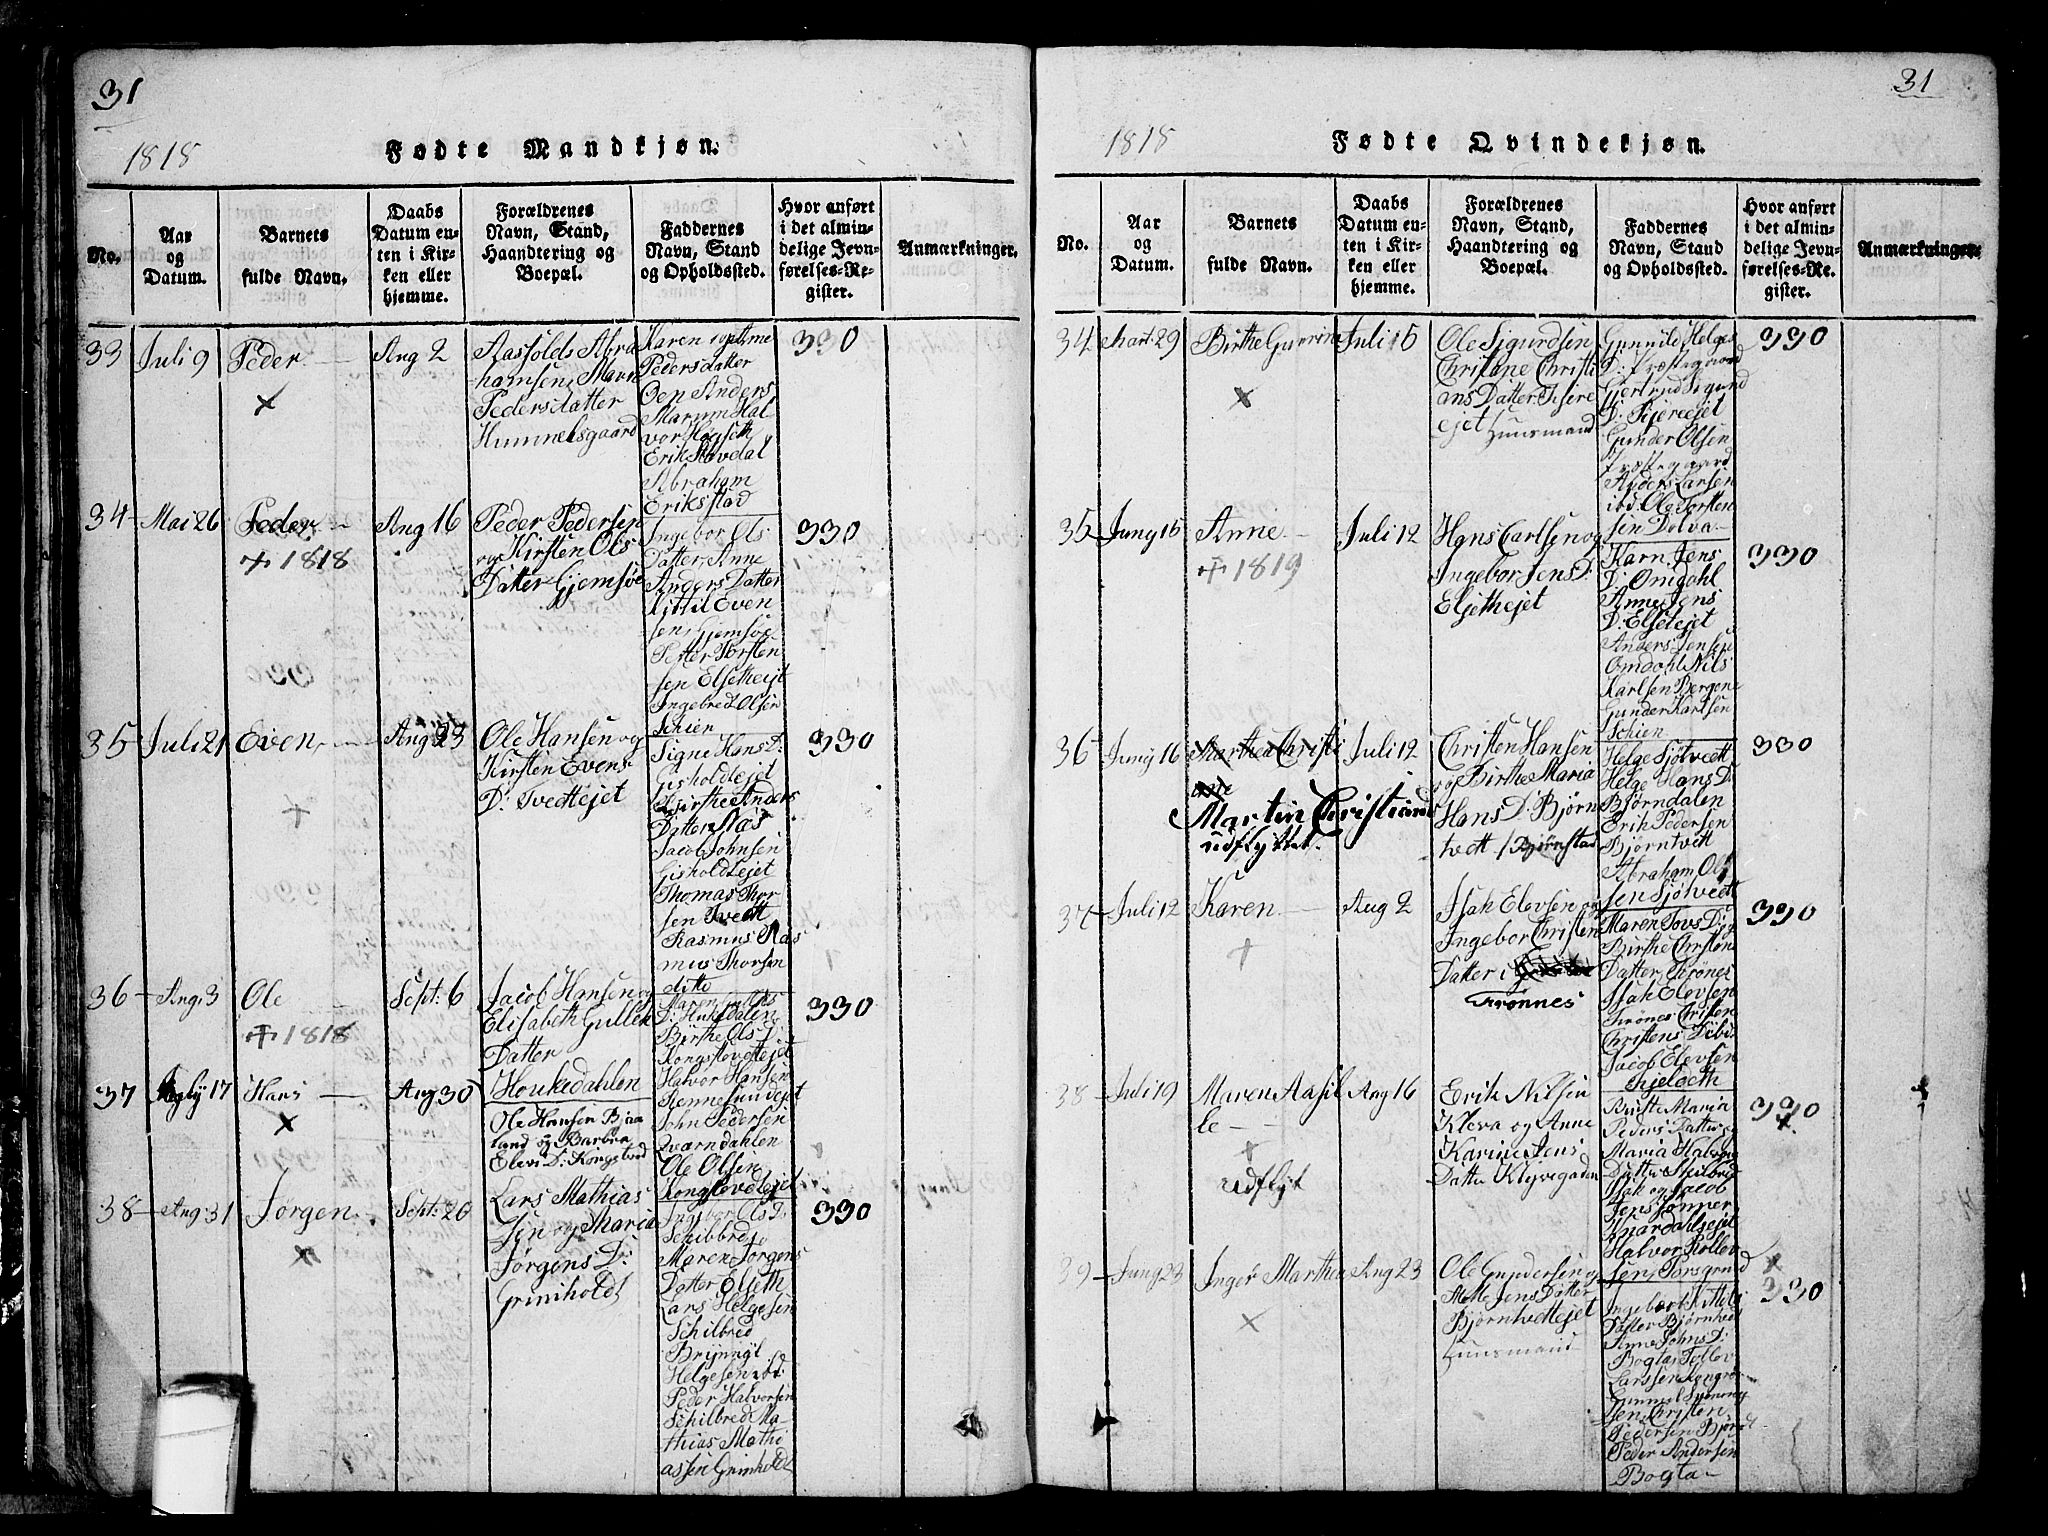 31
1818
Fødte Mandkjøn.
No.
Aar
og
Datum.
Barnets
fulde Navn.
Daabs
Datum en-
ten i Kir-
ken eller
hjemme.
Forældrenes
Navn, Stand,
Haandtering og
Boepæl.
Faddernes
Navn, Stand
og Opholdssted.
Hvor anført
i det almin-
delige Jevn-
førelses-Re-
gister.
Anmærkninger.
33
Juli 9
Peder
Aug 2
Aasfolds Abra
hamsen, Maren
Pedersdatter
Hummelsgaard
Karen
Pedersdatter
Oen Anders
Marum Hal
vor Høgseth
Erik Stavdal
Abraham
Eriksstad
330
34
Mai 26
Peder
+ 1818
Aug 16
Peder Pedersen
og Kirsten Ols
Datter Gjemsøe
Ingebor Ols
Datter, Anne
Anders Datter
Kittil Even
sen, Gjemsøe
Petter Torsten
sen Elsethejt
Ingebred Olsen
Schien
330
35
Juli 21
Even
Aug 23
Ole Hansen og
Kirsten Evens
D: Tvedtejet
Signe Hans D:
Gisholtejet
Birthe Anders
Datter Næs
Jacob Johnsen
Gisholdejet
Thomas Thor
sen Tvedt
Rasmus Ras
mus Thorsen
ditto
330
36
Aug. 3
Ole
+ 1818
Sept: 6
Jacob Hansen og
Elisabeth Gullek
Datter
Houkedahlen
Maren
D: Hukedalen
Birthe Ols D:
Kongstovettejet
Halvor Hansen
Rennesundejet
John Pedersen
Qværndahlen
Ole Olsen
Kongtovetejet
330
37
July 17
Hans
Aug 30
Ole Hansen Bjaa
land og Barbra
Elevs D: Kongstved
38
Aug: 31
Jørgen
Sept: 20
Lars Mathias
sen og Maria
Jørgens D:
Griniholdt
Ingebor Ols D:
Schibbred
Maren Jørgens
Datter Elseth
Lars Helgesen
Schilbred
Brynnyl
Helgesen ibd.
Peder Halvorsen
Schilbred Ma-
thias Mathi
assen Grinholdt
330
31
1818
Fødte Qvindekjøn.
No.
Aar
og
Datum.
Barnets
fulde Navn.
Daabs
Datum en-
ten i Kir-
ken eller
hjemme.
Forældrenes
Navn, Stand,
Haandtering og
Boepæl.
Faddernes
Navn, Stand
og Opholdssted.
Hvor anført
i det almin-
delige Jevn-
førelses-Re-
gister.
Anmærkninger.
34
Mart: 29
Birthe Gurine
Juli 15
Ole Sigurdsen
Christine Christi
ans Datter Fjære
ejet Huusmand
Gunnild Helges
D: Præstegaard
Gjertrud Sigurd
D: Fjereejet
Gunder Olsen
Præstegaard
Anders Larsen
ibd. Ole Torsten
sen Dolva
330
35
Juny 15
Anne
+ 1819
Juli 12
Hans Carlsen og
Ingebor Jens D:
Elsethejet
Karn Jens
D: Omdahl
Anne Jens
D: Elsetejet
Anders Jensen
Omdahl Nils
Karlsen Bergene
Gunder Karlsen
Schien
330
36
Juny 16
Marthea Christi
ane
Martin Christiane
udflyttet.
Juli 12
Christen Hansen
og Birthe Maria
Hans D: Bjørn
tvett / Bjørnstad
Helge Sjølvedt
Helge Hans D:
Bjørndalen
Erik Pedersen
Bjørntvett
Abraham Ol
sen Sjølvedt
330
37
Juli 12
Karen
Aug 2
Isak Elevsen og
Ingebor Christen
Datter i
Frønnes
Maren Tovs D:
Birthe Christen
Datter, Frønes
Isak Elevsen
Frønes Christen
Christens
Jacob Elevsen
330
38
Juli 19
Maren Aasil
le
udflyt
Aug 16
Erik Nilsen
Kleva og Anne
Karine Jens
Datter Klyvegaden
Birthe Maria
Peders Datter
Maria Halvor
Datter Skilbred
Isak og Jacob
Jens sønner
Knardahlsejet
Halvor Rollev
sen, Porsgrund
330
39
Juny 23
Inger Marthea
Aug 23
Ole Gundersen og
Mette Jens Datter
Bjørntvettejet
Huusmand
Ingebor Kittils
Datter Bjørntved
Anne Johns D:
Bogta, Tollev
Larssen
Gunmel Symony
sen Christen
Pedersen Bjørn
Peder Andersen
Bogta
330